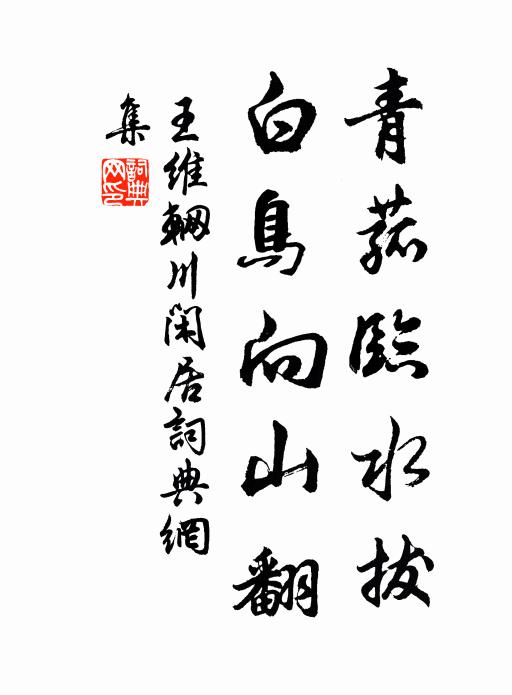 青菰臨水拔
白鳥向山翻
王維輞川閑居詞典網
集
詞典網印